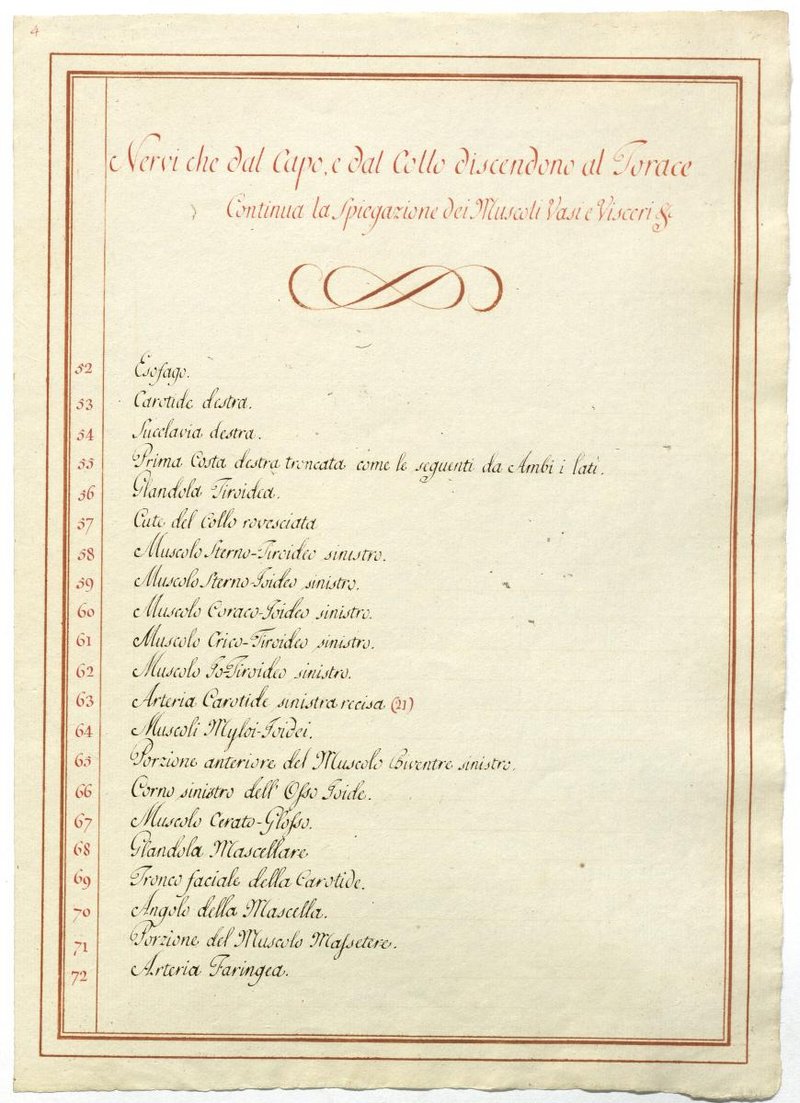 4
Nervi che dal Capo, e dal Collo discendono al Torace
Continua la Spiegazione dei Muscoli Vasi e Visceri &c
52 Esofago.
53 Carotide destra.
54 Succlavia destra.
55 Prima Costa destra troncata come le seguenti da Ambi i lati.
56 Glandola Tiroidea.
57 Cute del Collo rovesciata
58 Muscolo Sterno-Tiroideo sinistro.
59 Muscolo Sterno-Joideo sinistro.
60 Muscolo Coraco-Joideo sinistro.
61 Muscolo Crico-Tiroideo sinistro.
62 Muscolo Jo-Tiroideo sinistro.
63 Arteria Carotide sinistra recisa (21)
64 Muscoli Myloi-Joidei.
65 Porzione anteriore del Muscolo Biventre sinistro.
66 Corno sinistro dell' Osso Joide.
67 Muscolo Cerato-Glosso.
68 Glandola Mascellare
69 Tronco faciale della Carotide.
70 Angolo della Mascella.
71 Porzione del Muscolo Massetere.
72 Arteria Faringea.